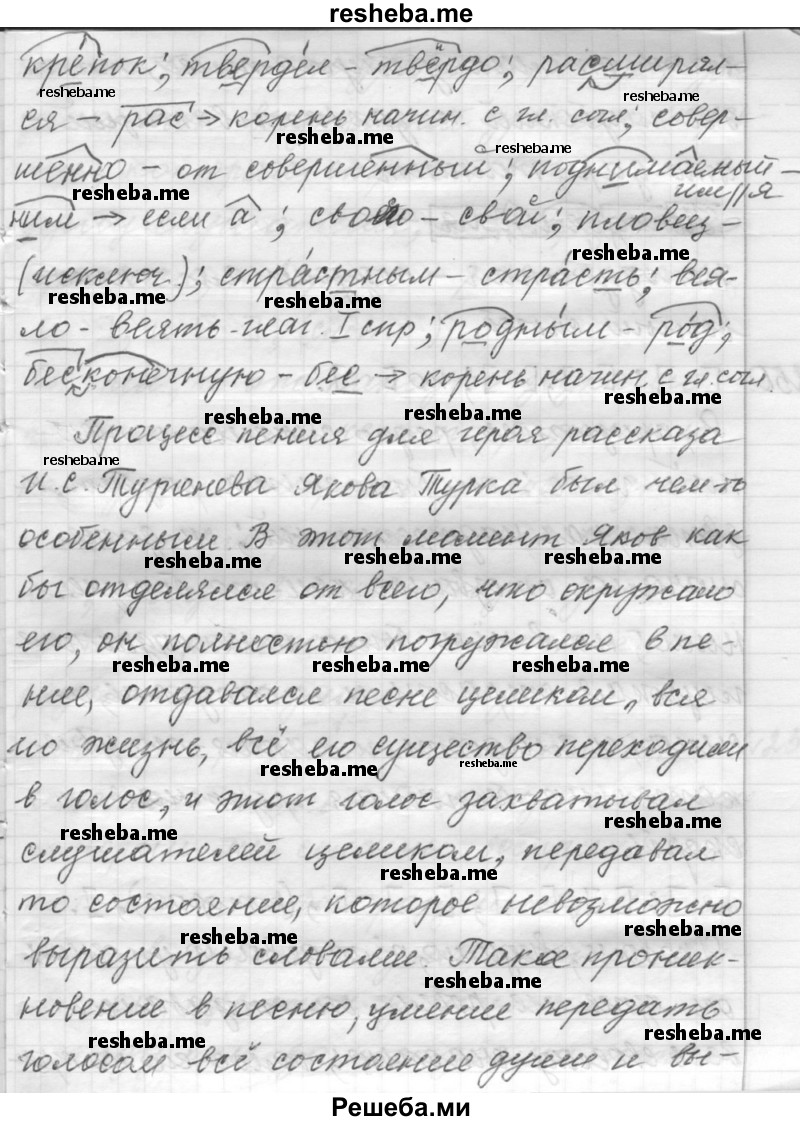 resheba.me
крепок; твердел – твёрдо; расширял-
ся – рас → корень начин. с гл. согл; совер-
шенно – от совершенный; поднимаемый –
им//я
ним → если а; свою – свой; пловец –
(исключ.); страстным – страсть; вея-
ло – веять – глаг. I спр; родным – род;
бесконечную – бес → корень начин. с гл. согл.
Процесс пения для героя рассказа
И.С. Тургенева Якова Турка был чем-то
особенным. В этот момент Яков как
бы отделялся от всего, что окружало
его, он полностью погружался в пе-
ние, отдавался песне целиком, вся
жизнь, всё его существо переходили
в голос, и этот голос захватывал
слушателей целиком, передавал
то состояние, которое невозможно
выразить словами. Такое проник-
новение в песню, умение передать
голосом всё состояние души и вы-
Решеба.ми